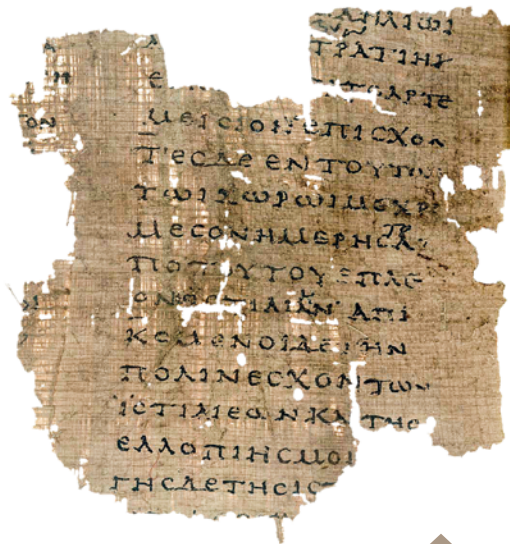 ΗΛΙΩΙ
ΤΡΑΤΙΗΙ
ΑΡΤΕ
ΜΕΙCΙΟΝΕΠΙCΧΟΝ
ΤΕCΔΕΕΝΤΟΥΤΩ
ΤΩΙΧΩΡΩΙΜΕΧΡΙ
ΜΕCΟΝΗΜΕΡΗCΑ
ΠΟΤΟΥΤΟΥΕΠΛΕ
ΟΝ ΤΙΑΙΑΝ ΑΠΙ
ΚΟΜΕΝΟΙΔΕΤΗΝ
ΠΟΛΙΝΕCΧΟΝΤΩΝ
ΪCΤΙΑΙΕΩΝΚΑΙΤΗC
ΕΛΛΟΠΙΗCΜΟΙ
ΓΗCΔΕΤΗCΙC